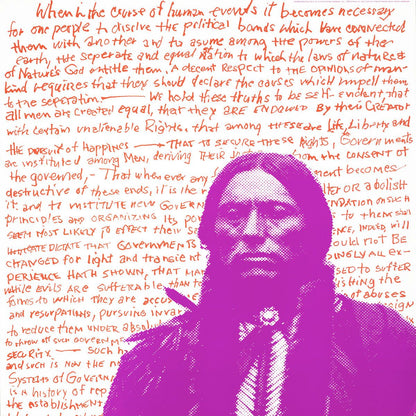 When in the course of human events it becomes necessary
for one people to disolve the political bonds which have connected
them with another and to asume among the powers of the
earth, the seperate and equal station to which the laws of nature &
of Nature's God entitle them, A decent Respect to the OPINIONS of man
kind requires that they should declare the causes which impell them
to the seperation — We hold these truths to be self-evident, that
all men are created equal, that they are ENDOWED BY their CREATOR
with certain unalienable Rights, that among these are Life, Liberty and
the pursuit of happiness — THAT TO SECURE THESE RIGHTS, Governments
are instituted among Men, deriving THEIR from the CONSENT OF
the governed, - That when ever any becomes
destructive of these ends, it is the R LTER OR abolish
it and to INSTITUTE NEW GOVERN NDATION ON SUCH
PRINCIPLES and ORGANIZING its po to them shall
SEEM MOST LIKELY TO EFFECT their Sa NCE, INDEED, will
DICTATE THAT GOVERNMENTS ould not BE
CHANGED for light and transient INGLY ALL EX-
PERIENCE HATH SHOWN, THAT MAN SED TO SUFFER
WHILE EVILS ARE SUFFERABLE, THAN To lishing the
forms to which they are accus of abuses
and usurpations, pursuing invar
to reduce them UNDER absolu
to throw off such governme
security — Such h
and such is now the n
Systems of Governm
is a history of rep
the establishment